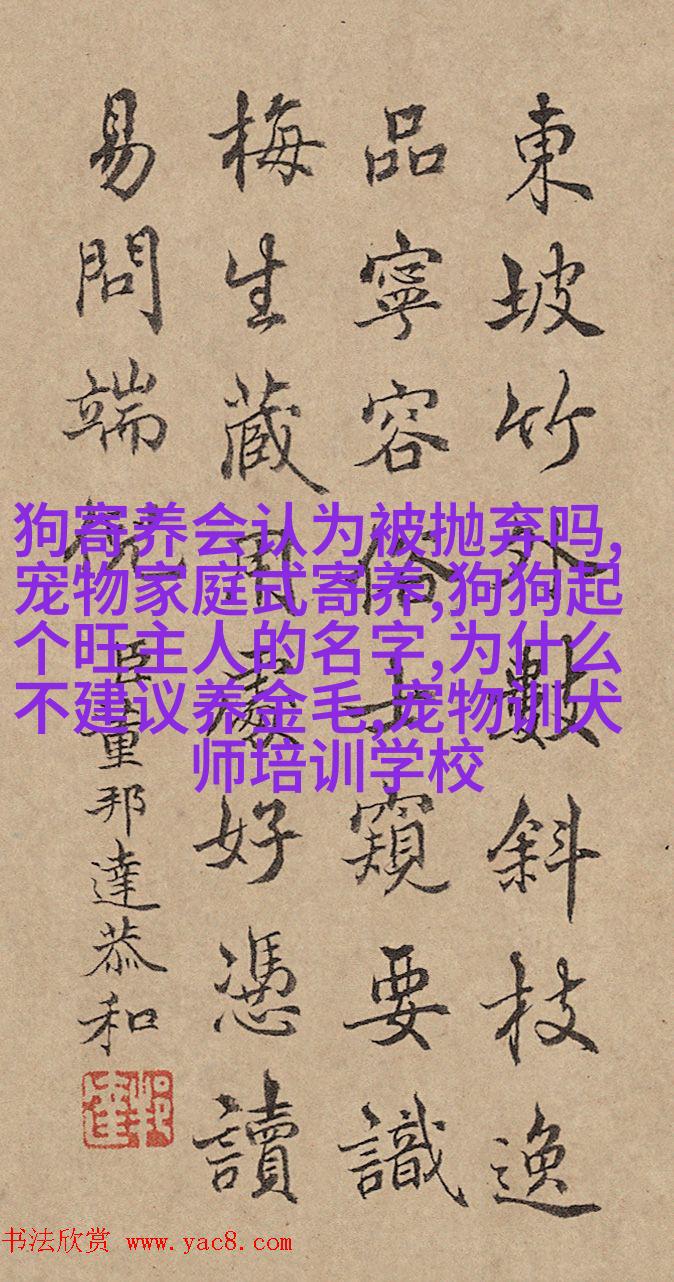 東坡竹外數斜枝逸
品寧容俗士窺要識
梅生藏用處好憑讀
易問端倪 臣董邦達恭和
狗寄养会认为被抛弃吗,
宠物家庭式寄养,狗狗起
个旺主人的名字,为什么
不建议养金毛,宠物训犬
师培训学校
书法欣赏 www.yac8.com